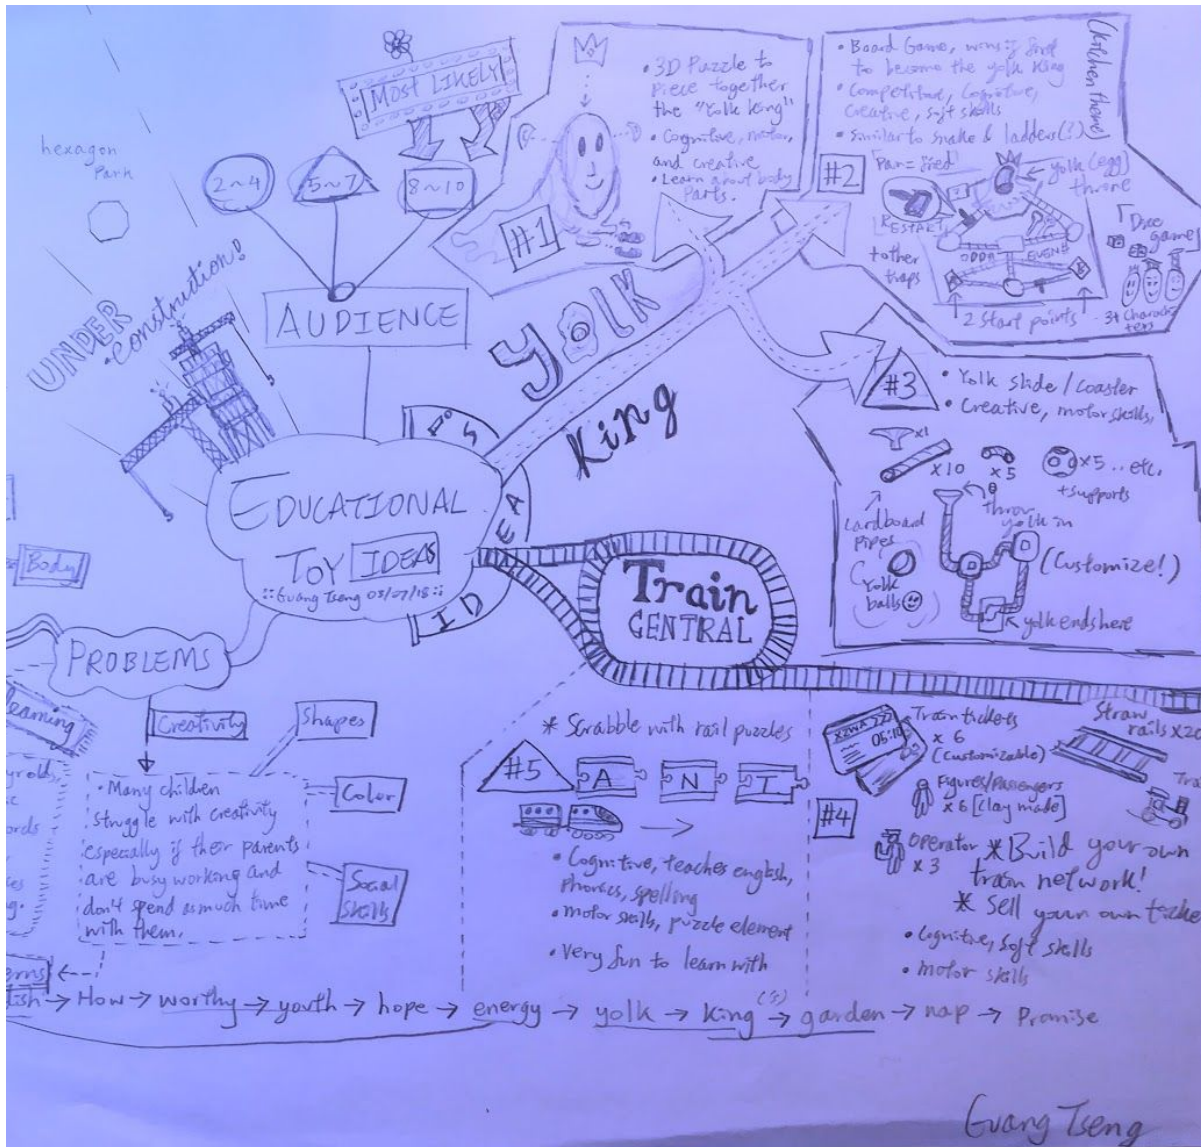 hexagon
Park
UNDER
Construction!
MOST LIKELY
2~4
5~7
8~10
AUDIENCE
EDUCATIONAL
TOY IDEAS
::Guang Tseng 03/07/18::
IDEAS
YOLK
King
#1
• 3D Puzzle to
piece together
the "Yolk King"
• Cognitive, motor,
and creative
• Learn about body
parts.
#2
(Kitchen theme)
• Board Game, wins if first
to become the yolk king
• Competitive, Cognitive,
creative, soft skills
• Similar to snake & ladders(?)
"Pan-fried"
RESTART
+other
traps
yolk (egg)
throne
ODD
EVEN
2 Start points
Dice
game
3+ Charac
ters
#3
• Yolk slide / coaster
• Creative, motor skills,
x1
x10
x5
x5 .. etc.
+supports
Cardboard
pipes
throw
yolk in
(Customize!)
Yolk
balls
yolk ends here
Train
CENTRAL
Body
PROBLEMS
learning
Creativity
Shapes
Color
Social
Skills
• Many children
struggle with creativity
especially if their parents
are busy working and
don't spend as much time
with them.
* Scrabble with rail puzzles
#5
A N I
• Cognitive, teaches english,
phonics, spelling
• motor skills, puzzle element
• Very fun to learn with
#4
XZWA >>>
05:10
Train tickets
x 6
(Customizable)
Straw
rails x20
Tra
Figures/Passengers
x 6 [clay made]
Operator
x 3
* Build your own
train network!
* Sell your own ticke
• Cognitive, soft skills
• motor skills
dish → How → worthy → youth → hope → energy → yolk → king ('s) → garden → nap → Promise
Guang Tseng